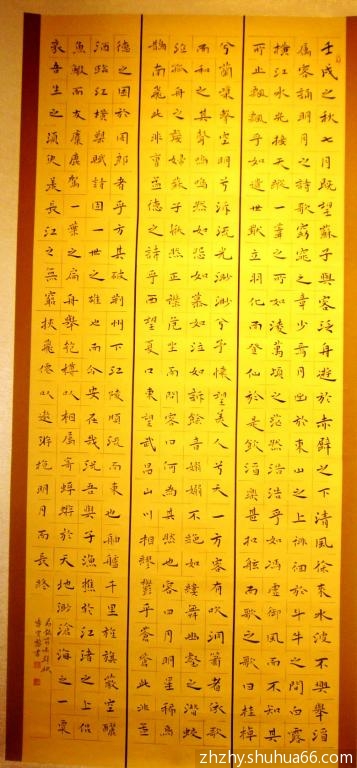 壬戌之秋七月既望蘇子與客泛舟遊於赤壁之下清風徐來水波不興舉酒
屬客誦明月之詩歌窈窕之章少焉月出於東山之上徘徊於斗牛之間白露
橫江水光接天縱一葦之所如凌萬頃之茫然浩浩乎如馮虛御風而不知其
所止飄飄乎如遺世獨立羽化而登仙於是飲酒樂甚扣舷而歌之歌曰桂棹
兮蘭槳擊空明兮泝流光渺渺兮予懷望美人兮天一方客有吹洞簫者依歌
而和之其聲嗚嗚然如怨如慕如泣如訴餘音嫋嫋不絕如縷舞幽壑之潛蛟
泣孤舟之嫠婦蘇子愀然正襟危坐而問客曰何為其然也客曰月明星稀烏
鵲南飛此非曹孟德之詩乎西望夏口東望武昌山川相繆鬱乎蒼蒼此非孟
德之困於周郎者乎方其破荊州下江陵順流而東也舳艫千里旌旗蔽空釃
酒臨江橫槊賦詩固一世之雄也而今安在哉況吾與子漁樵於江渚之上侶
魚鰕而友麋鹿駕一葉之扁舟舉匏樽以相屬寄蜉蝣於天地渺滄海之一粟
哀吾生之須臾羨長江之無窮挾飛僊以遨遊抱明月而長終
zhzhy.shuhua66.com